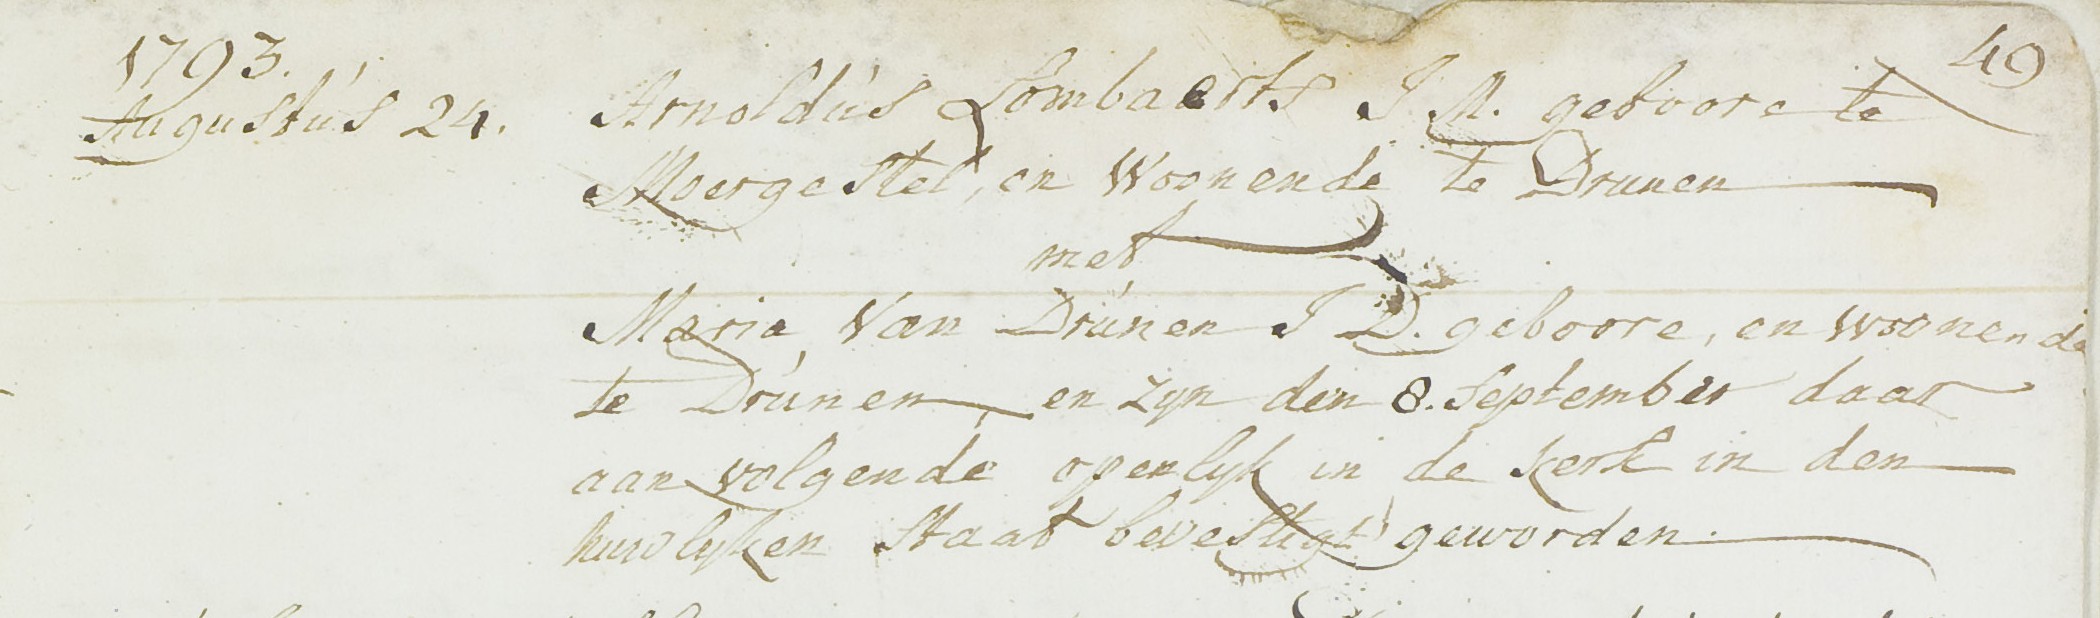 49
1793.
Augustus 24. Arnoldus Lombaerts J M. geboore te
Moergestel, en Woonende te Drunen
met
Maria van Drunen J D. geboore, en woonende
te Drunen en zyn den 8. September daar
aan volgende openlyk in de kerk in den
huwlyken staat bevestigt geworden.